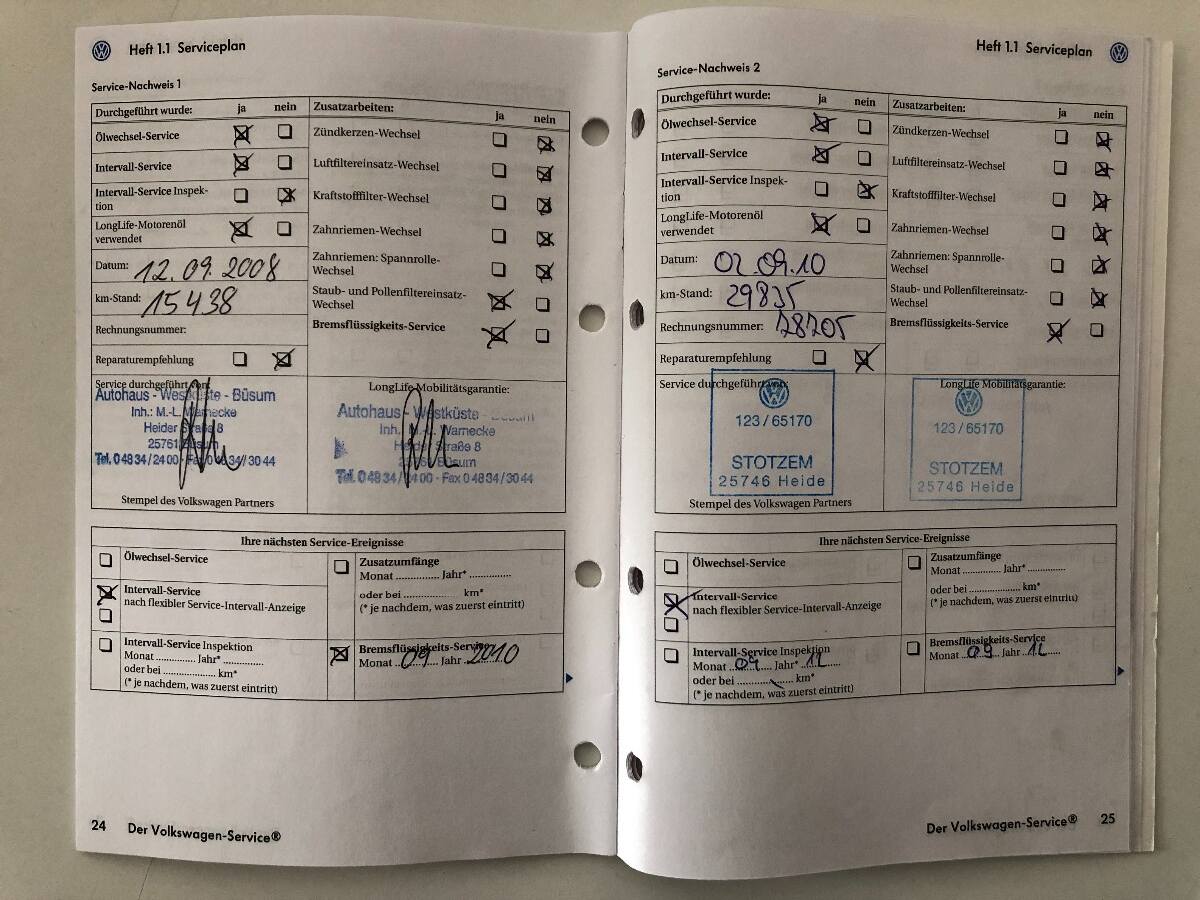 Heft 1.1 Serviceplan
Service-Nachweis 1
Durchgeführt wurde: ja nein
Ölwechsel-Service
Intervall-Service
Intervall-Service Inspek-
tion
LongLife-Motorenöl
verwendet
Datum: 12.09.2008
km-Stand: 15438
Rechnungsnummer:
Reparaturempfehlung
Zusatzarbeiten: ja nein
Zündkerzen-Wechsel
Luftfiltereinsatz-Wechsel
Kraftstofffilter-Wechsel
Zahnriemen-Wechsel
Zahnriemen: Spannrolle-
Wechsel
Staub- und Pollenfiltereinsatz-
Wechsel
Bremsflüssigkeits-Service
Service durchgeführt von:
Autohaus - Westküste - Büsum
Inh.: M.-L. Warnecke
Heider Straße 8
25761 Büsum
Tel. 0 48 34 / 24 00 - Fax 0 48 34 / 30 44
Stempel des Volkswagen Partners
LongLife-Mobilitätsgarantie:
Autohaus - Westküste - Büsum
Inh. M.-L. Warnecke
Heider Straße 8
25761 Büsum
Tel. 0 48 34 / 24 00 - Fax 0 48 34 / 30 44
Ihre nächsten Service-Ereignisse
Ölwechsel-Service
Intervall-Service
nach flexibler Service-Intervall-Anzeige
Intervall-Service Inspektion
Monat .............. Jahr* ..............
oder bei ........................ km*
(* je nachdem, was zuerst eintritt)
Zusatzumfänge
Monat ............... Jahr* ...............
oder bei ........................ km*
(* je nachdem, was zuerst eintritt)
Bremsflüssigkeits-Service
Monat 09 Jahr 2010
24 Der Volkswagen-Service®
Heft 1.1 Serviceplan
Service-Nachweis 2
Durchgeführt wurde: ja nein
Ölwechsel-Service
Intervall-Service
Intervall-Service Inspek-
tion
LongLife-Motorenöl
verwendet
Datum: 02.09.10
km-Stand: 29835
Rechnungsnummer: 28205
Reparaturempfehlung
Zusatzarbeiten: ja nein
Zündkerzen-Wechsel
Luftfiltereinsatz-Wechsel
Kraftstofffilter-Wechsel
Zahnriemen-Wechsel
Zahnriemen: Spannrolle-
Wechsel
Staub- und Pollenfiltereinsatz-
Wechsel
Bremsflüssigkeits-Service
Service durchgeführt von:
123 / 65170
STOTZEM
25746 Heide
Stempel des Volkswagen Partners
LongLife Mobilitätsgarantie:
123 / 65170
STOTZEM
25746 Heide
Ihre nächsten Service-Ereignisse
Ölwechsel-Service
Intervall-Service
nach flexibler Service-Intervall-Anzeige
Intervall-Service Inspektion
Monat 09 Jahr* 12
oder bei ........................ km*
(* je nachdem, was zuerst eintritt)
Zusatzumfänge
Monat ............... Jahr* ...............
oder bei ........................ km*
(* je nachdem, was zuerst eintritt)
Bremsflüssigkeits-Service
Monat 09 Jahr 12
Der Volkswagen-Service® 25